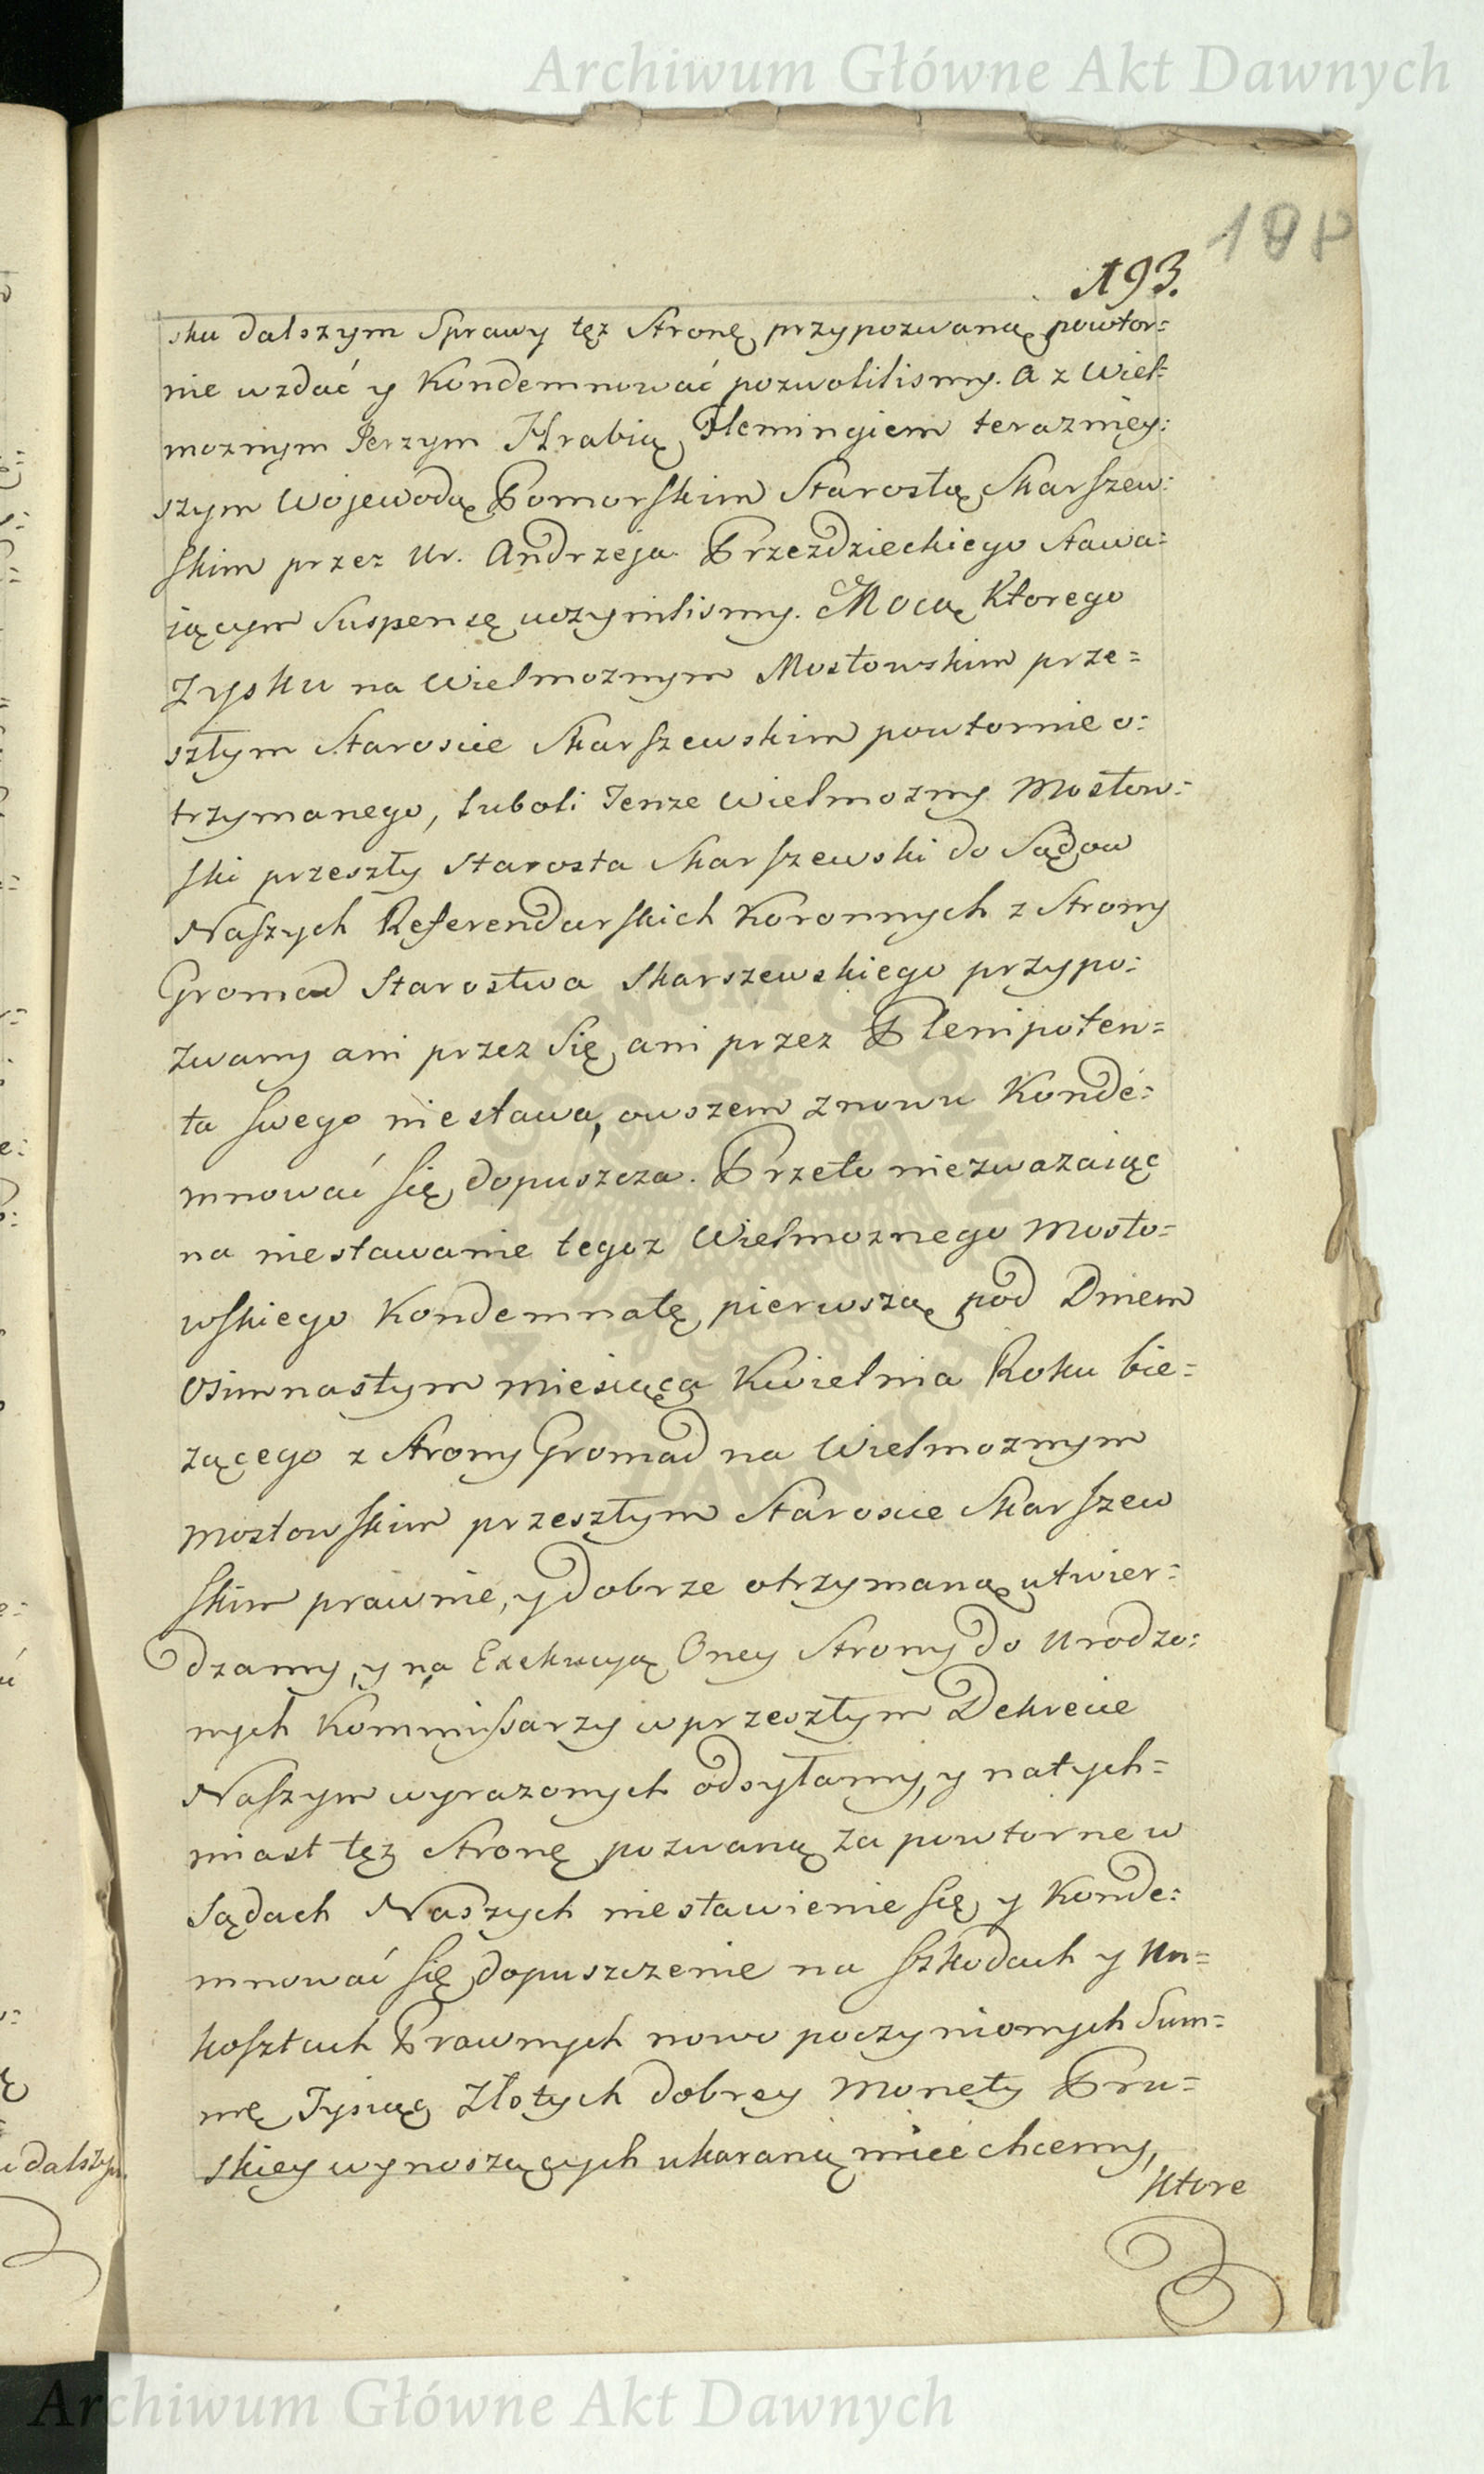 Archiwum Główne Akt Dawnych
193.
sku dalszym Sprawy tęż Stronę przypozwaną powtor=
nie wzdać y Kondemnować pozwolilismy. A z Wiel=
moznym Jerzym Hrabią Flemingiem teraznięy=
szym Wojewodą Pomorskim Starostą Skarszew=
skim przez Ur. Andrzeja Przezdzieckiego stawa=
iącym Suspensę uczynilismy. Mocą Ktorego
Zysku na Wielmoznym Mostowskim prze=
szłym Staroscie Skarszewskim powtornie o=
trzymanego, luboli Tenze Wielmozny Mostow=
ski przeszły Starosta Skarszewski do Sądow
Naszych Referendarskich Koronnych z Strony
Gromad Starostwa Skarszewskiego przypo=
zwany ani przez Się, ani przez Plenipoten=
ta swego niestawa, owszem znowu Konde=
mnować się dopuszcza. Przeto niezwazaiąc
na niestawanie tegoz Wielmoznego Mosto=
wskiego Kondemnatę pierwszą pod Dniem
Osimnastym miesiąca Kwietnia Roku bie=
zącego z Strony Gromad na Wielmoznym
Mostowskim przeszłym Staroscie Skarszew
skim prawnie, y dobrze otrzymaną utwier=
dzamy, y na Exekucyą Oney Strony do Urodzo=
nych Kommissarzy w przeszłym Dekrecie
Naszym wyrazonych odsyłamy, y natych=
miast tęż Stronę pozwaną za powtorne w
Sądach Naszych niestawienie się y Konde=
mnować się dopuszczenie na szkodach y Un=
kosztach Prawnych nowo poczynionych Sum=
mę Tysiąc Złotych dobrey Monety Pru=
skiey wynoszących ukaraną miec chcemy,
Ktore
u dalszym
Archiwum Główne Akt Dawnych